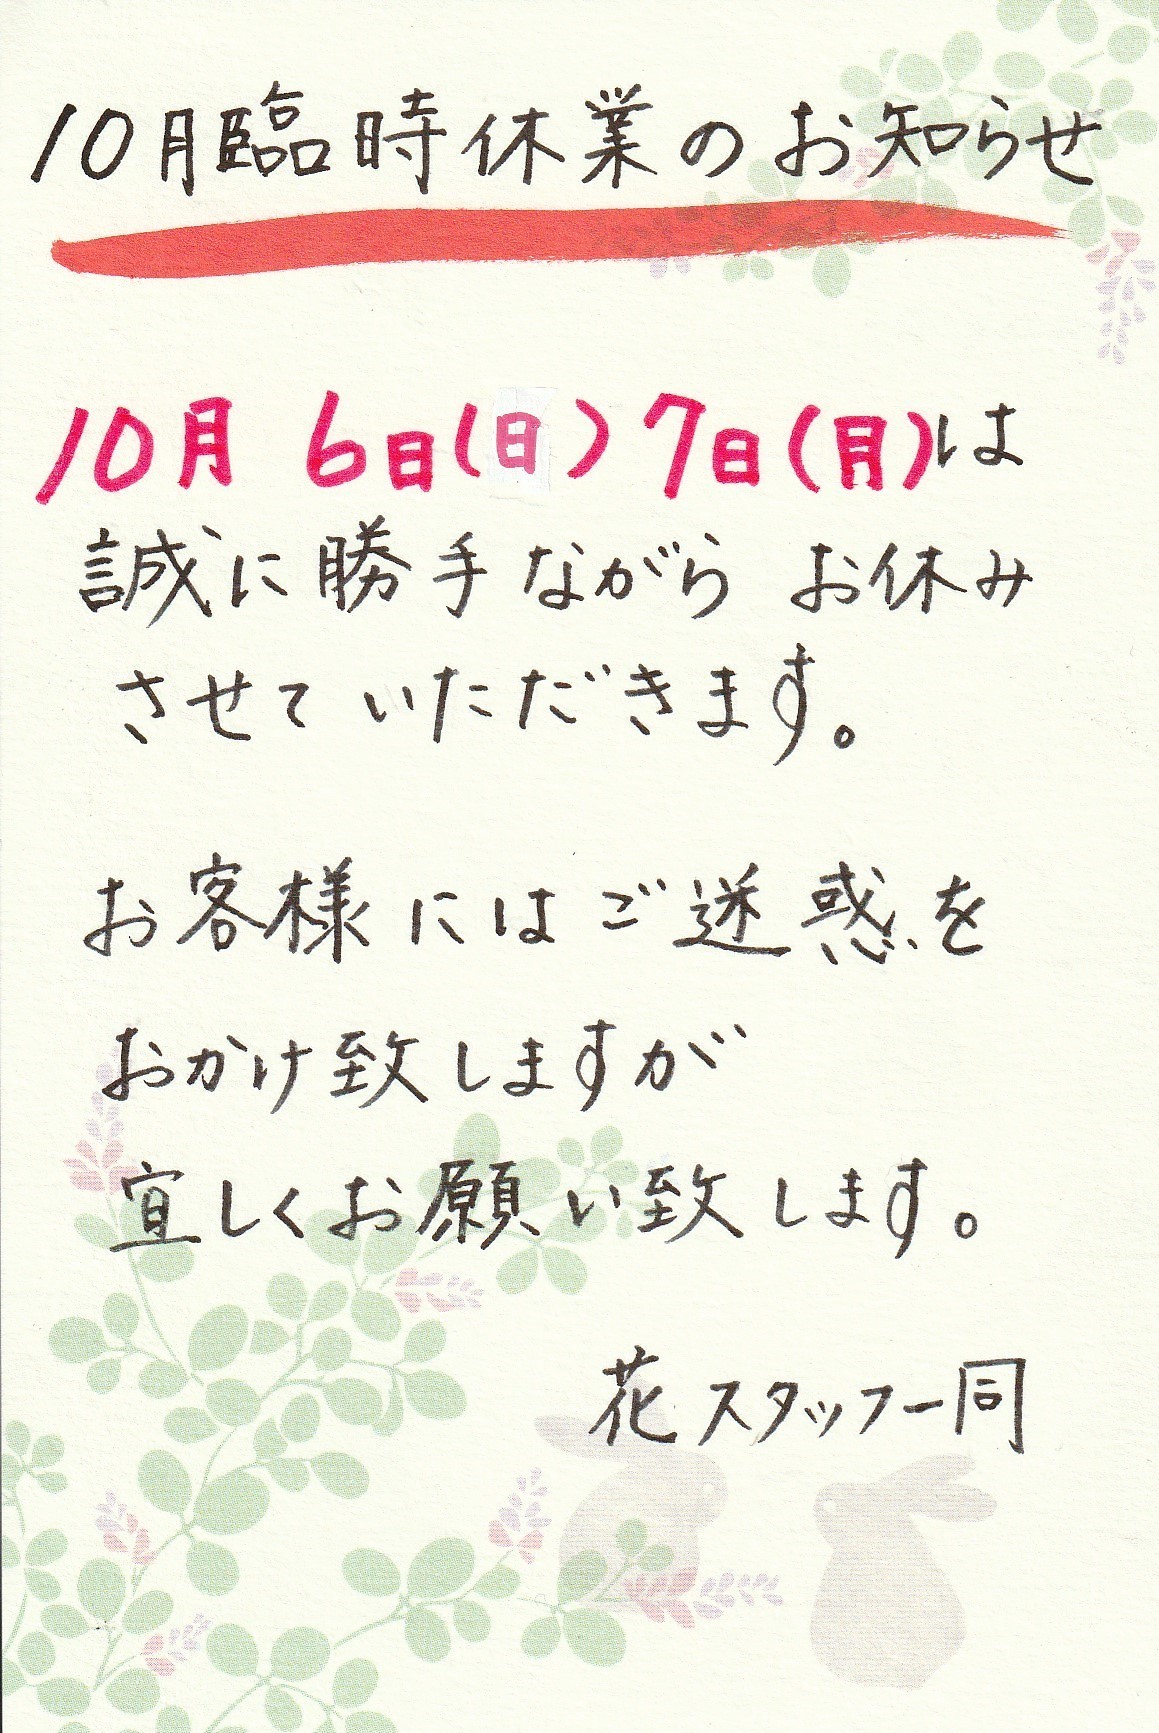 10月臨時休業のお知らせ
10月 6日(日) 7日(月)は
誠に勝手ながら お休み
させていただきます。
お客様にはご迷惑を
おかけ致しますが
宜しくお願い致します。
花スタッフ一同